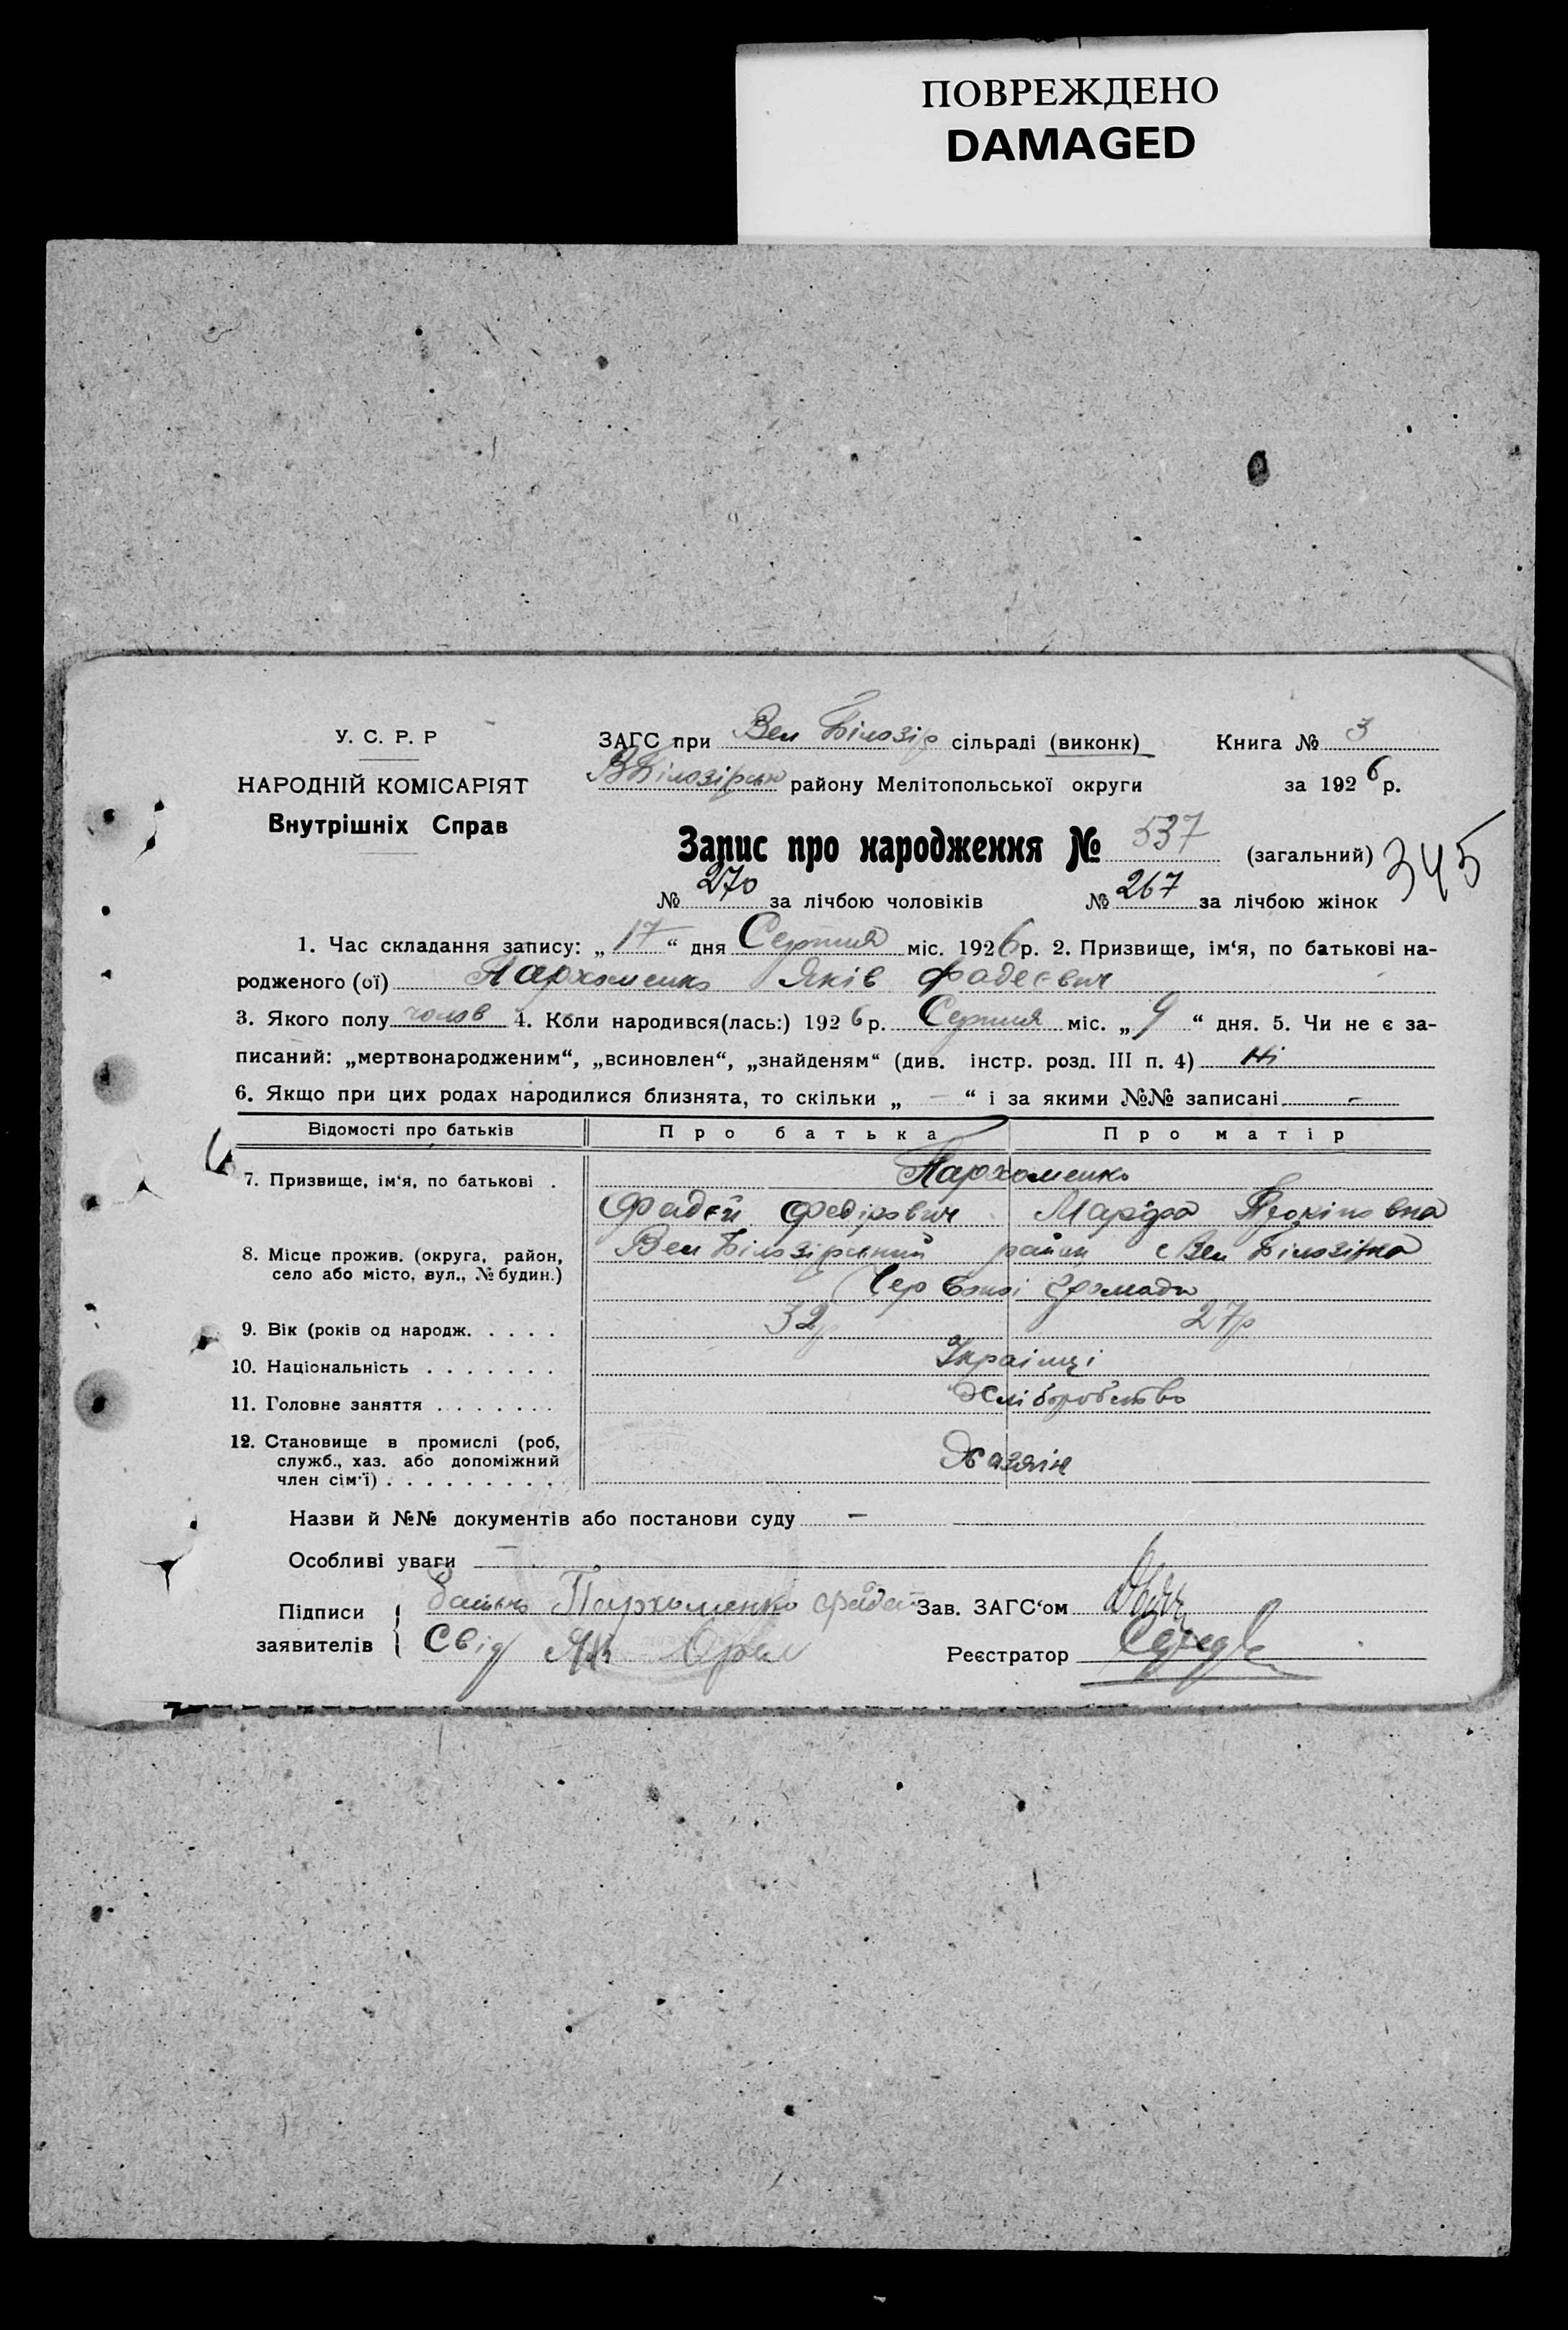 ПОВРЕЖДЕНО
DAMAGED
У. С. Р. Р
НАРОДНІЙ КОМІСАРІЯТ
Внутрішніх Справ
ЗАГС при Вел Білозір сільраді (виконк)
ВБілозірськ району Мелітопольської округи
Книга № 3
за 1926 р.
Запис про народження № 537 (загальний) 345
№ 270 за лічбою чоловіків № 267 за лічбою жінок
1. Час складання запису: „17“ дня Серпня міс. 1926 р. 2. Призвище, ім‘я, по батькові на-
родженого (ої) Пархоменко Яків Фадеєвич
3. Якого полу чолов 4. Коли народився(лась:) 1926 р. Серпня міс. „9“ дня. 5. Чи не є за-
писаний: „мертвонародженим“, „всиновлен“, „знайденям“ (див. інстр. розд. III п. 4) Ні
6. Якщо при цих родах народилися близнята, то скільки „ — “ і за якими №№ записані. -
Відомості про батьків Про батька Про матір
7. Призвище, ім‘я, по батькові . Пархоменко
Фадєй Федірович Марфа
8. Місце прожив. (округа, район, село або місто, вул., № будин.) Вел Білозірський район с Вел Білозірка
Червоної громади
9. Вік (років од народж. . . . . 32р 27р
10. Національність . . . . . . . Українці
11. Головне заняття . . . . . . . Хліборобство
12. Становище в промислі (роб, служб., хаз. або допоміжний член сім‘ї) . . . . . . . . . Хазяїн
Назви й №№ документів або постанови суду —
Особливі уваги —
Підписи заявителів { батько Пархоменко Фадей
Свід
Зав. ЗАГС‘ом
Реєстратор